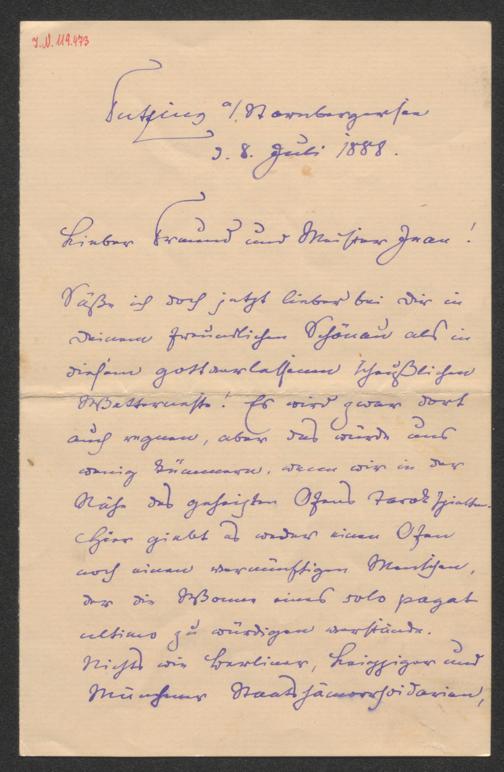 J.N. 119.473
Tutzing a/Starnbergersee
d. 8. Juli 1888.
Lieber Freund und Meister Jean!
Säße ich doch jetzt lieber bei Dir in
Deinem freundlichen Schönau als in
diesem gottverlassenen scheußlichen
Wetterneste! Es wird zwar dort
auch regnen, aber das würde uns
wenig kümmern, wenn wir in der
Nähe des geheizten Ofens Tarok spielten.
Hier giebt es weder einen Ofen
noch einen vernünftigen Menschen,
der die Wonne eines solo pagat
ultimo zu würdigen verstünde.
Nichts wie Berliner, Leipziger und
Münchner Staatshämorrhoidarien,